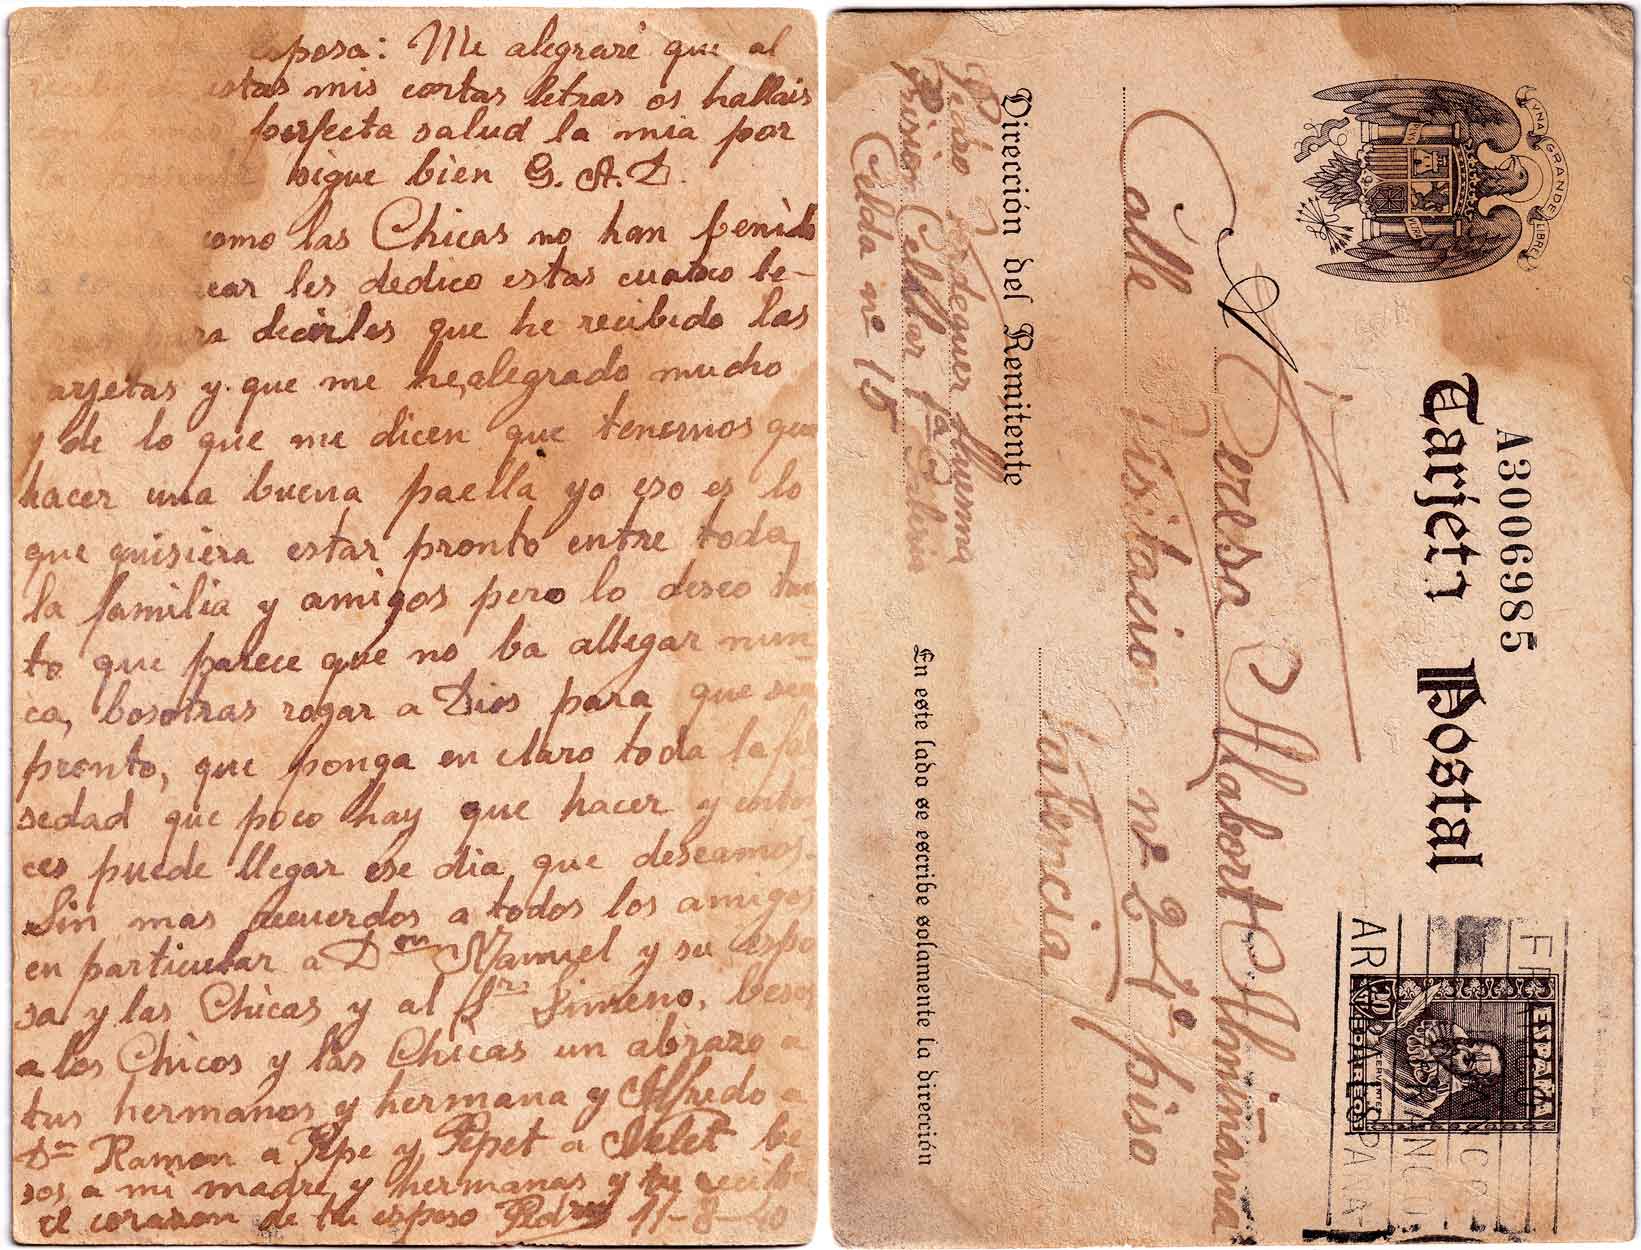 esposa: Me alegraré que al
estas mis cortas letras os hallais
perfecta salud la mia por
sigue bien G. A. D.
como las Chicas no han benido
les dedico estas cuatro le-
decirles que he recibido las
arjetas y que me he alegrado mucho
y de lo que me dicen que tenemos que
hacer una buena paella yo eso es lo
que quisiera estar pronto entre toda
la familia y amigos pero lo deseo tan
to que parece que no ba allegar nun-
ca, bosotras rogar a Dios para que sea
pronto, que ponga en claro toda la fal
sedad que poco hay que hacer y enton
ces puede llegar ese dia que deseamos.
Sin mas recuerdos a todos los amigos
en particular a Don Manuel y su espo
sa y las Chicas y al Sr Simeno, besos
a los Chicos y las Chicas un abrazo a
tus hermanos y hermana y Alfredo a
Dn Ramon a Pepe y Pepet a Nelet be
sos a mi madre y hermanas y tu recibe
el corazon de tu esposo Pedro 11-8-40
UNA GRANDE LIBRE
A3006985
Tarjeta Postal
ESPAÑA
CERVANTES
20
CTS
FRANCO
ARRIBA ESPAÑA
A
Teresa Alabort Almiñana
Calle Visitacion nº 2 1º piso
Valencia
Dirección del Remitente
Pedro Verdeguer
Prision Cellular 1ª Galeria
Celda nº 15
En este lado se escribe solamente la dirección